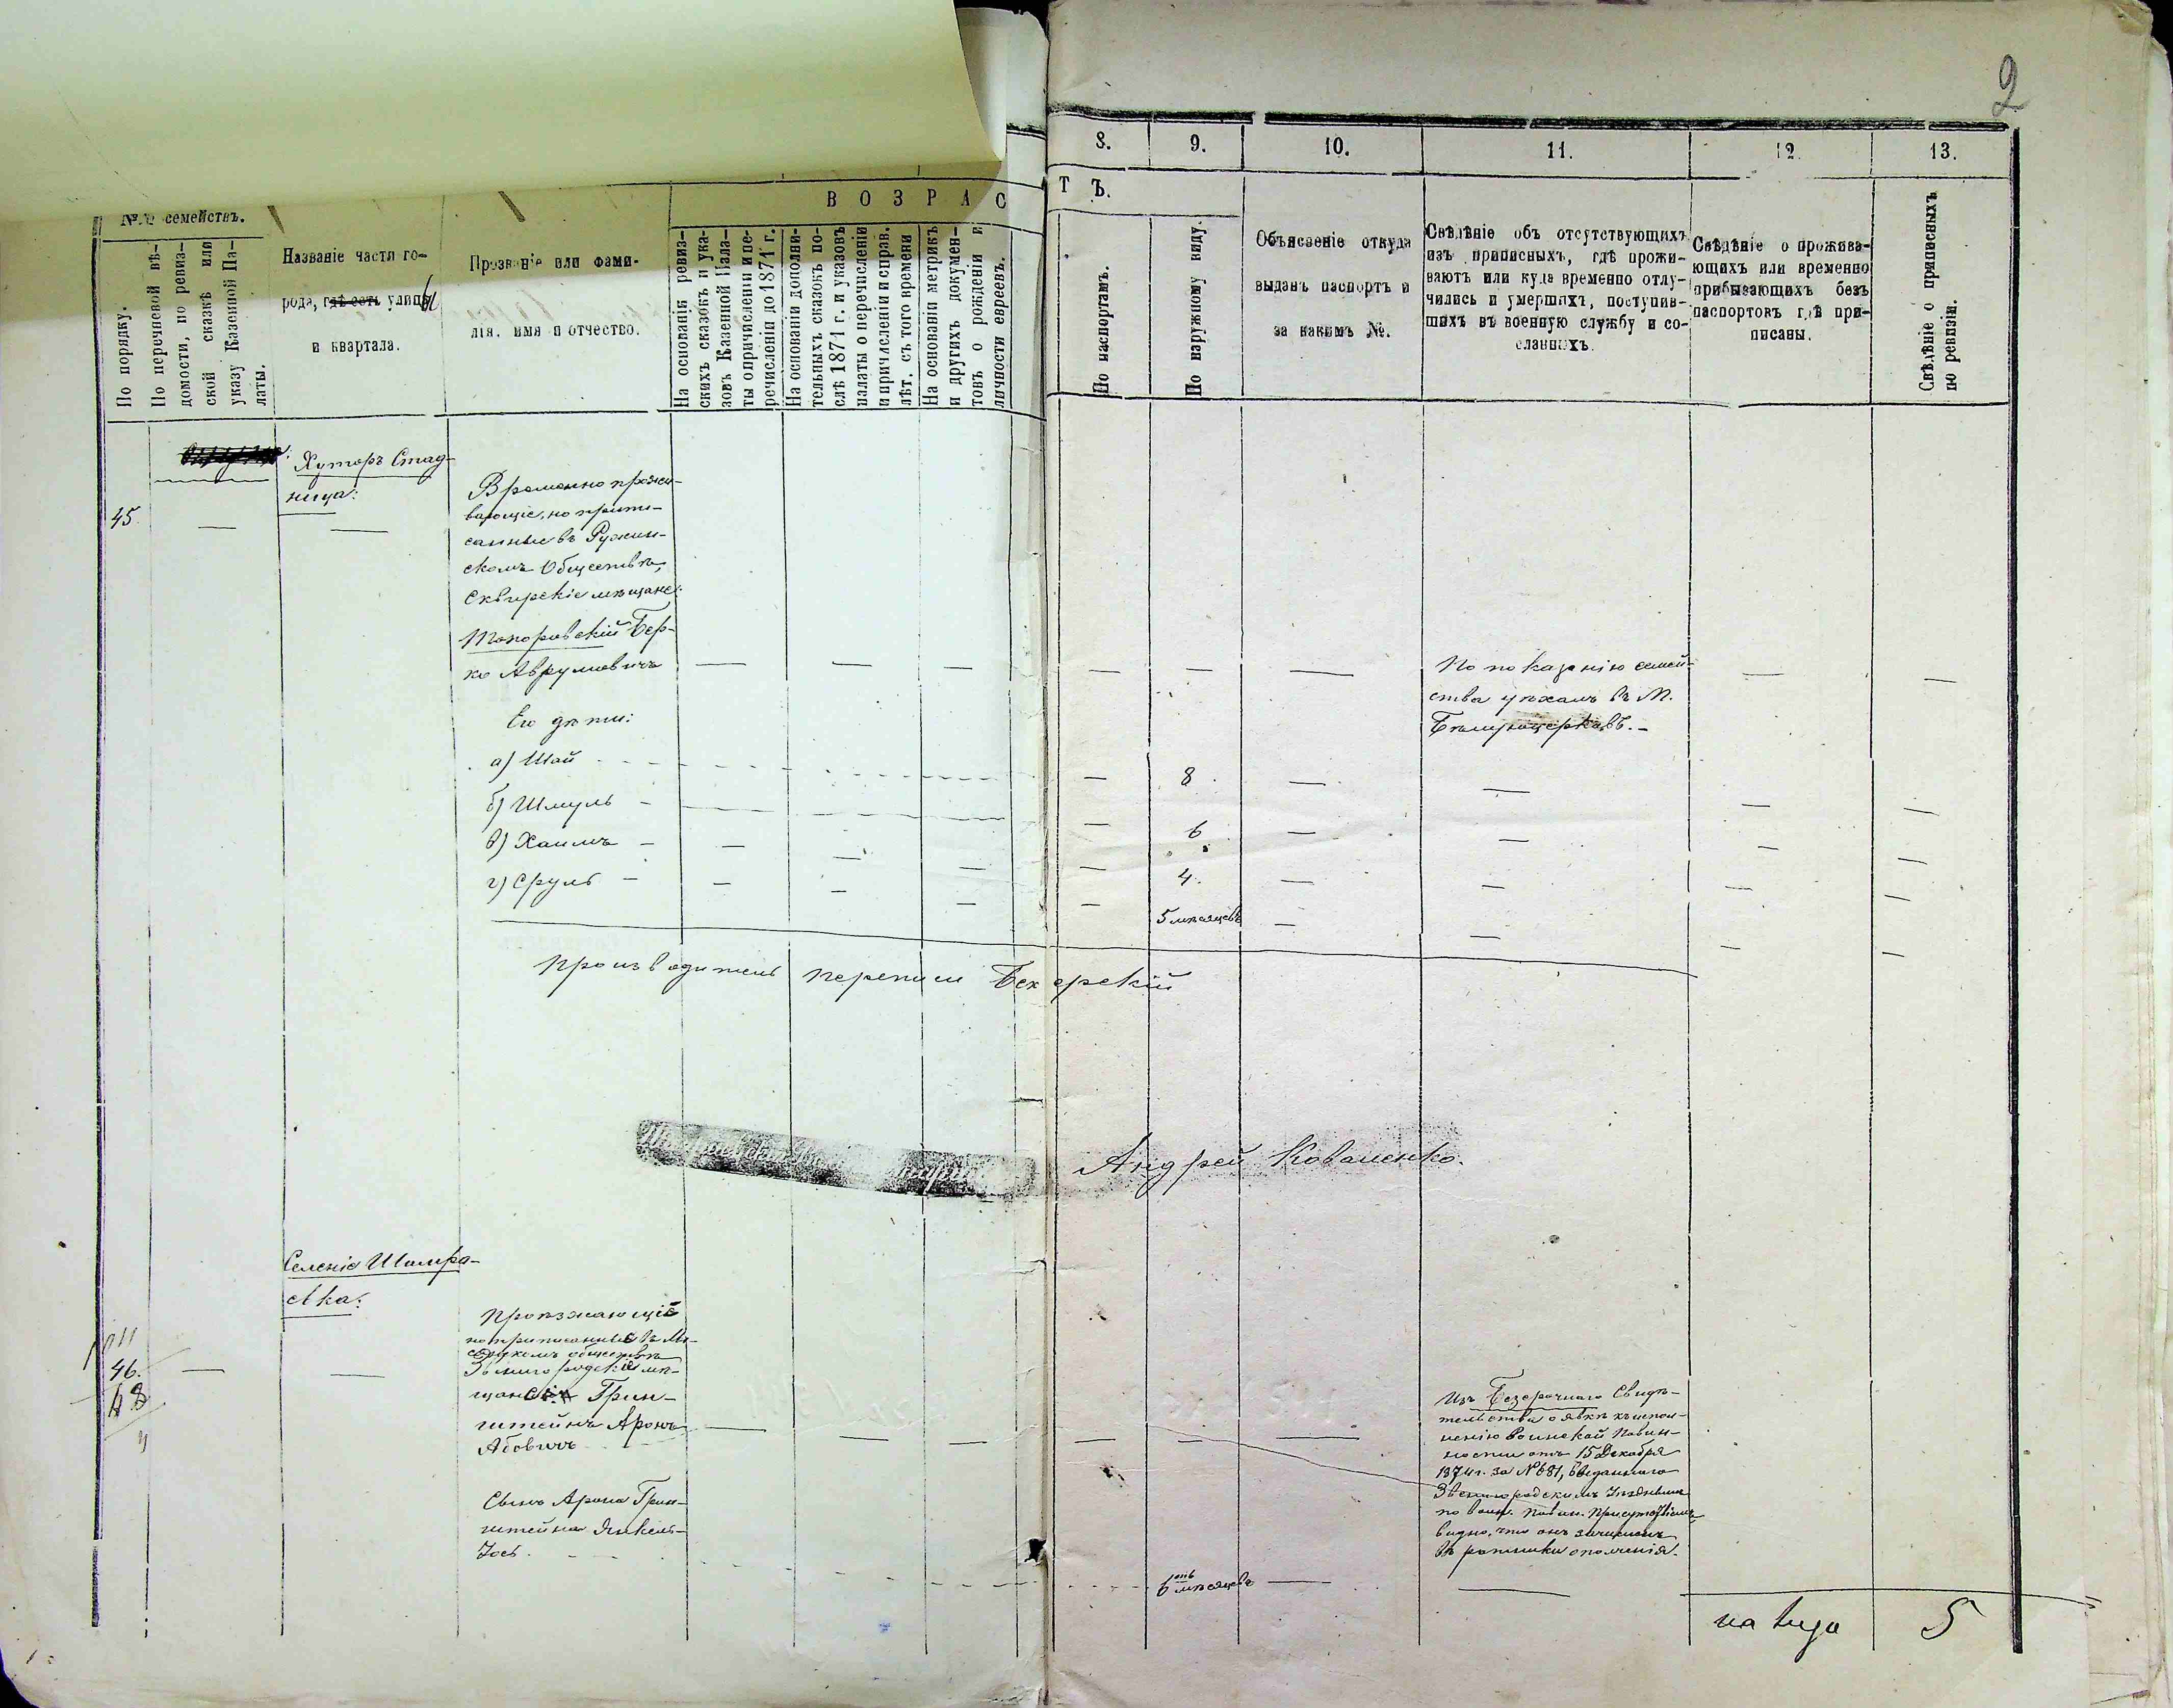 2
8.
9.
10.
11.
12
13.
ВОЗРАС
ТЪ.
№№ семействъ.
По порядку.
По перечневой вѣ-
домости, по ревиз-
ской сказкѣ или
указу Казенной Па-
латы.
Названіе части го-
рода, гдѣ есть улицы
и квартала.
Прозваніе или фами-
лія, имя и отчество.
На основаніи ревиз-
скихъ сказокъ и ука-
зовъ Казенной Пала-
ты о причисленіи и пе-
речисленіи до 1871 г.
На основаніи дополни-
тельныхъ сказокъ по-
слѣ 1871 г. и указовъ
палаты о перечисленіи
и причисленіи и справ.
лѣт. съ того времени
На основаніи метрикъ
и другихъ докумен-
товъ о рожденіи и
личности евреевъ.
По паспортамъ.
По наружному виду.
Объясненіе откуда
выданъ паспортъ и
за какимъ №.
Свѣдѣніе объ отсутствующихъ
изъ приписныхъ, гдѣ прожи-
ваютъ или куда временно отлу-
чились и умершихъ, поступив-
шихъ въ военную службу и со-
сланныхъ.
Свѣдѣніе о прожива-
ющихъ или временно
прибывающихъ безъ
паспортовъ гдѣ при-
писаны.
Свѣдѣніе о приписныхъ
по ревизіи.
Хуторъ Стад-
ница:
45.
Временно прожи-
вающіе, но припи-
санные въ Ружин-
скомъ Обществѣ,
Сквирскіе мѣщане:
Топоровскій Бер-
ко Аврумовичъ
По показанію семей-
ства уѣхалъ въ М.
Бѣлуюцерковь. -
Его дѣти:
а) Шай
8
б) Шмуль
6
в) Хаимъ
4.
г) Сруль
5 мѣсяцевъ
Производитель переписи Бехерскій
Андрей Коваленко.
Селеніе Шамра-
евка:
46.
48
Проѣзжающіе
но приписанные въ
обществѣ
Звенигородскіе мѣ-
щане Грин-
штейнъ Аронъ
Абовичъ
Изъ Безсрочнаго Свидѣ-
тельства о явкѣ къ испол-
ненію воинской повин-
ности отъ 15 Декабря
1874 г. за № 681, выданнаго
Звенигородскимъ Уѣзднымъ
по воин. повин. Присутствіемъ
видно, что онъ зачисленъ
въ ратники ополченія.
Сынъ Арона Грин-
штейна Янкель-
Іось.
6 мѣсяцевъ
на лицо
5